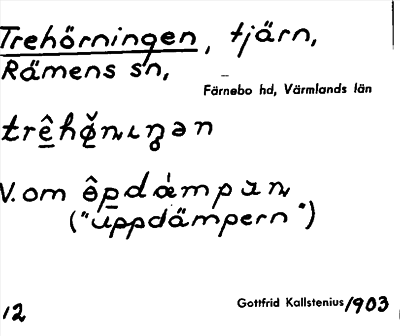 Trehörningen, tjärn,
Rämens sn,
Färnebo hd, Värmlands län
V. om
("uppdämpern")
12
Gottfrid Kallstenius/1903